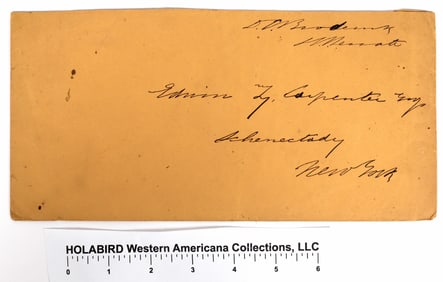 D. C. Broderick
U.S. Senate
Edwin G. Carpenter Esq.
Schenectady
New York
HOLABIRD Western Americana Collections, LLC
0 1 2 3 4 5 6